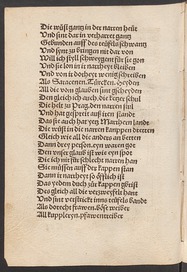 Die wüst gantz in der narren heüt
Und sint dar in verharret gantz
Gebunden auff des teüfels schwantz
Und sint zů bringen nit dar von
Will ich schon schweygent für sie gon
Und sie lon in ir narrheyt bleiben
Und von ir dorheyt wenig schreiben
Als Saracenen, Türcken, Heyden
All die vom glauben sint gescheyden
Den gleich ich auch die ketzer schůl
Die zů Prag den narren stůl
Und hat gespreit auß iren stand
Das sie auch hat yetz Marchen land
Die wüst in die narren kappen dretten
Wie gleich all die anders an betten
Dann drey person, eyn waren got
Den unser glaub ist wie eyn spot
Die ich nit für schlecht narren han
Sie müssen auff der kappen stan
Dann ir narrheyt so öfflich ist
Das yedem důch zůr kappen gbrist
Des gleich all die verzweyfelt hant
Und sint verstrickt inns teüfels bandt
Als dorecht frawen, böse weiber
All kupplerin, pfawentreiber